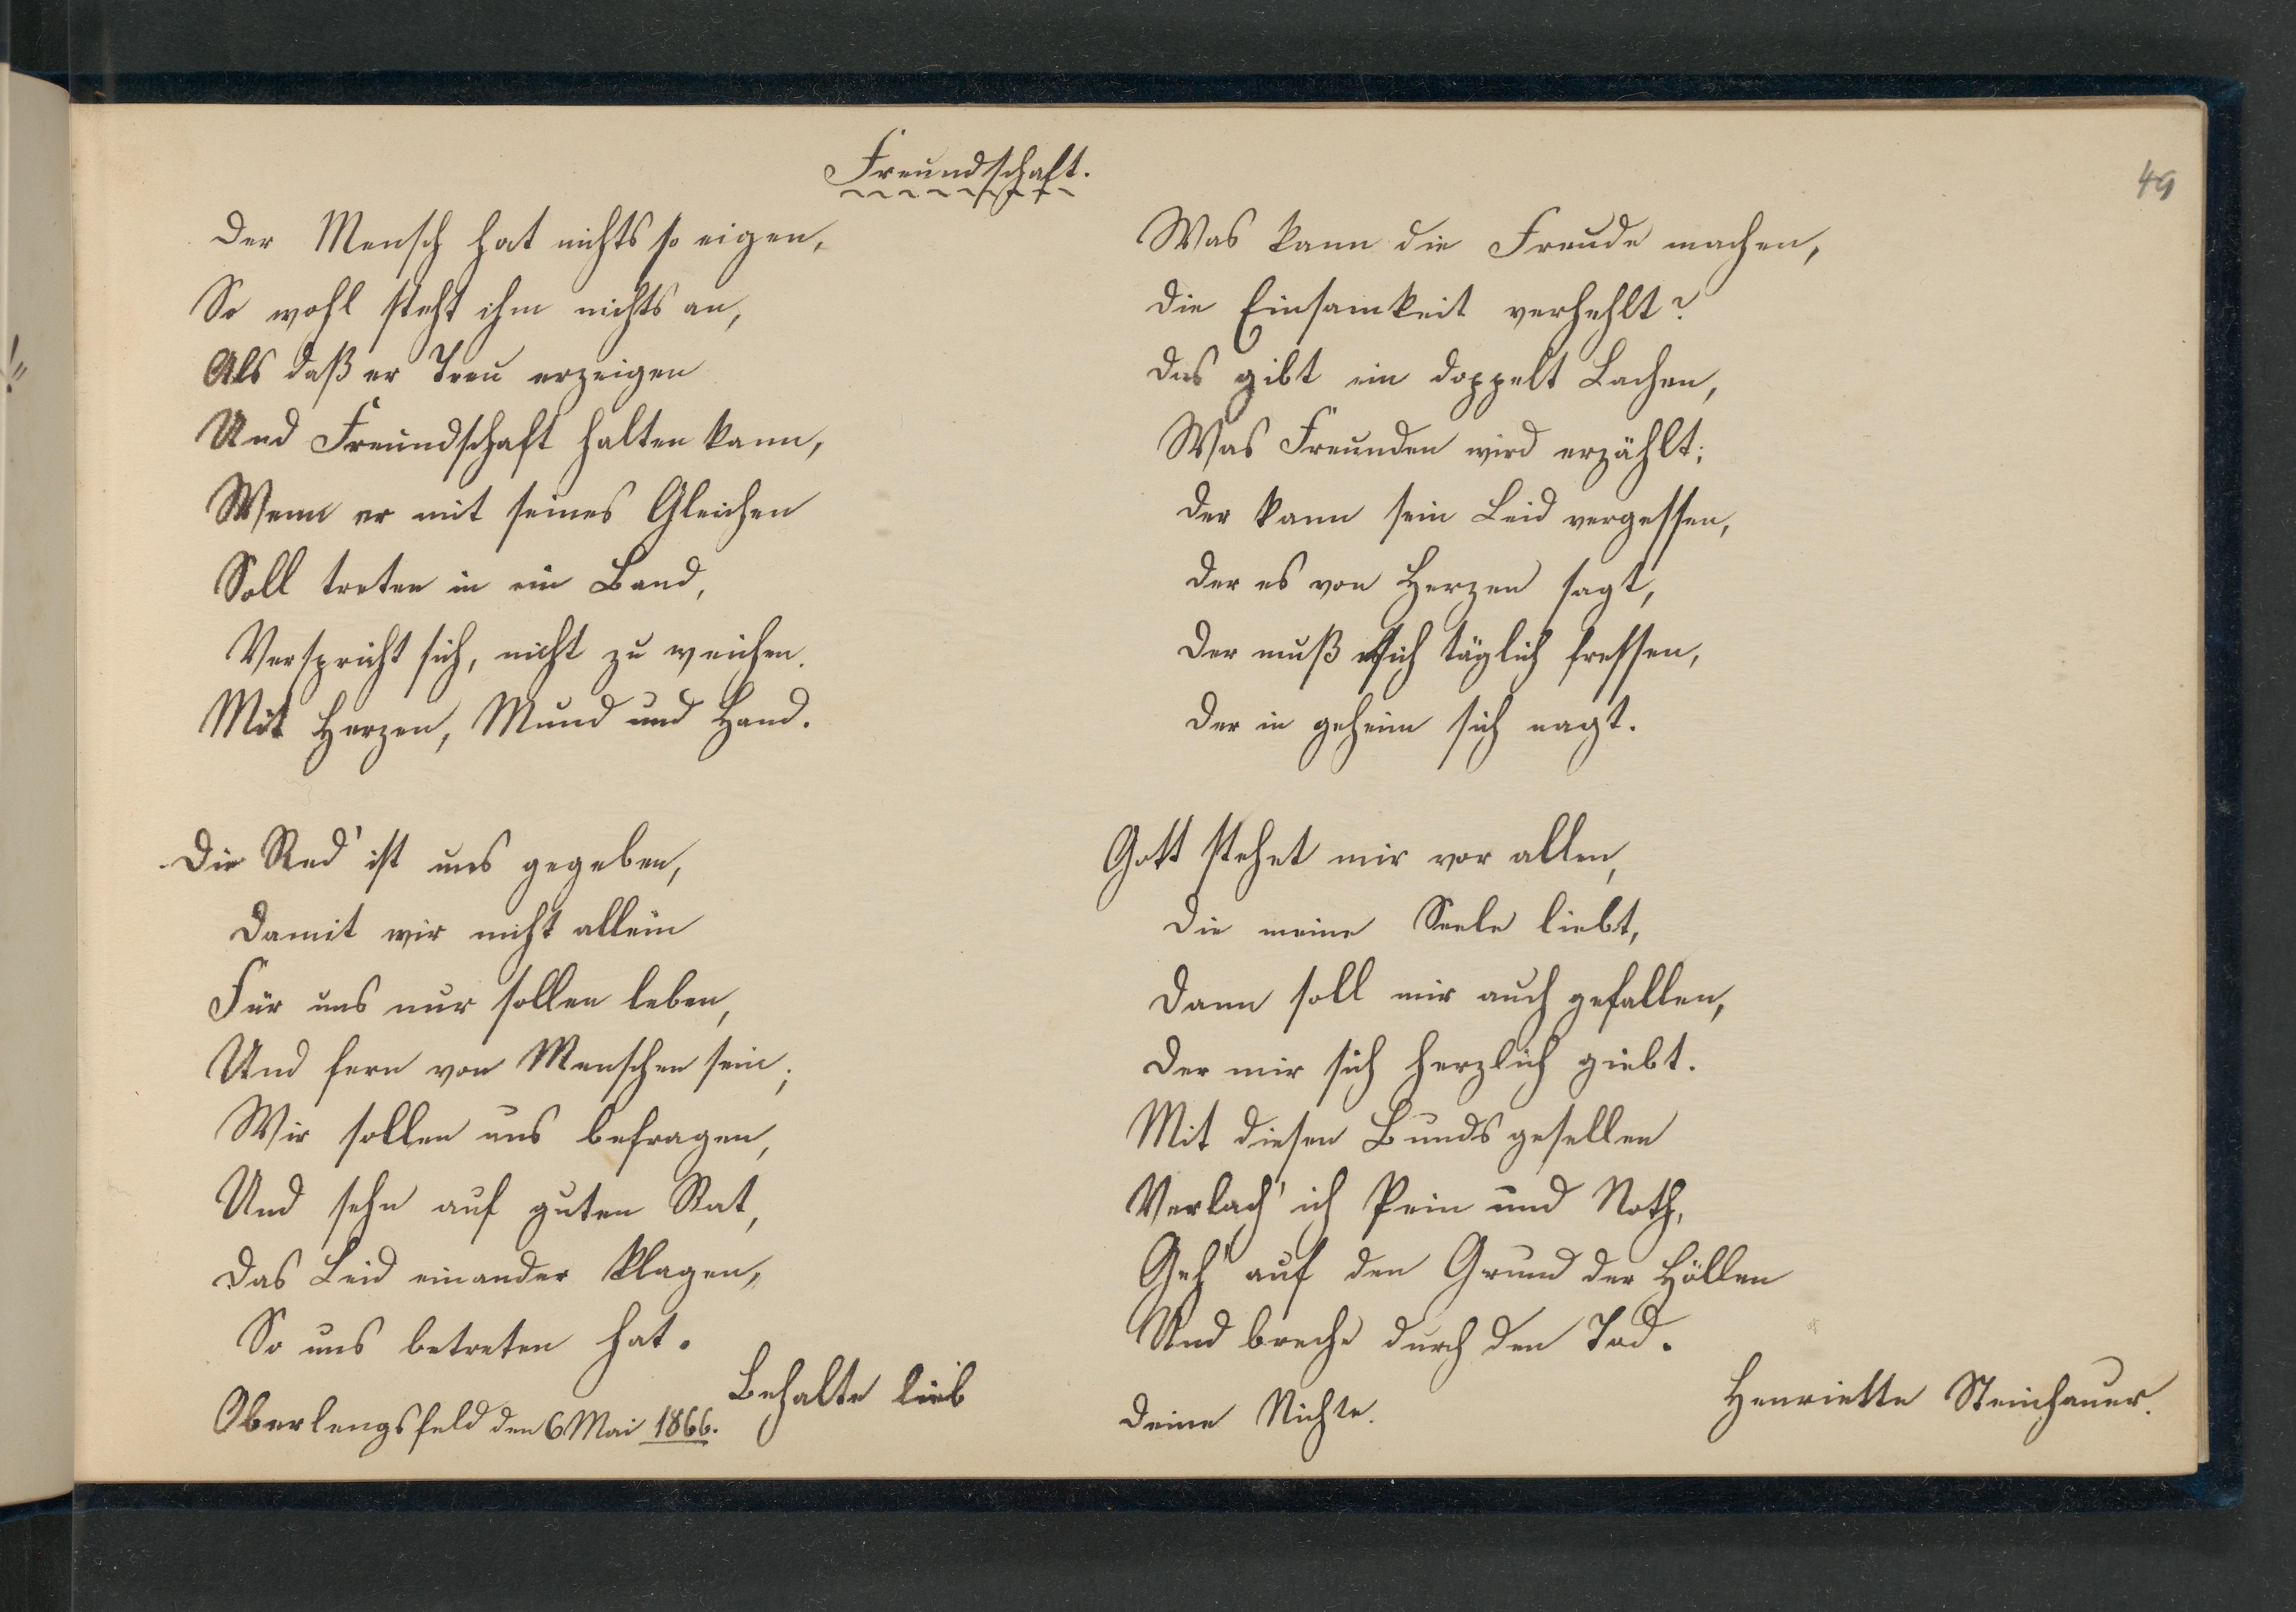 Freundschaft.
49
Der Mensch hat nichts so eigen,
So wohl steht ihm nichts an,
Als daß er Treu erzeigen
Und Freundschaft halten kann,
Wenn er mit seines Gleichen
Soll treten in ein Band,
Verspricht sich, nicht zu weichen.
Mit Herzen, Mund und Hand.
Die Red' ist uns gegeben,
Damit wir nicht allein
Für uns nur sollen leben,
Und fern von Menschen sein;
Wir sollen uns befragen,
Und sehn auf guten Rat,
Das Leid einander klagen,
So uns betreten hat.
Was kann die Freude machen,
Die Einsamkeit verhehlt?
Das gibt ein doppelt Lachen,
Was Freunden wird erzählt;
Der kann sein Leid vergessen,
Der es von Herzen sagt,
Der muß sich täglich fressen,
Der in geheim sich nagt.
Gott stehet mir vor allen,
Die meine Seele liebt,
Dann soll mir auch gefallen,
Der mir sich herzlich giebt.
Mit diesen Bunds gesellen
Verlach' ich Pein und Noth,
Geh' auf den Grund der Höllen
Und breche durch den Tod.
Oberlengsfeld den 6 Mai 1866.
Behalte lieb
Deine Nichte.
Henriette Steinhauer.